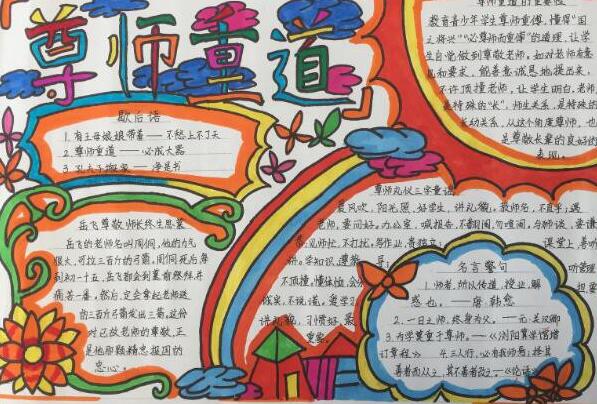 尊师重道
歇后语
1. 有王母娘娘带着——不愁上不了天
2. 尊师重道——必成大器
3. 孔夫子搬家——净是书
岳飞尊敬师长终生思慕
岳飞的老师名叫周侗，他的力气
很大，可拉三百斤的弓霸。周侗死后，每
到初一十五，岳飞都会到墓前祭拜，并
痛苦一番，然后，定会拿起老师送
的三百斤弓霸发出三箭，这份
对已故老师的尊敬，正
是他那颗精忠报国的
忠心。
尊师重道的重要性
教育青少年学生尊师重傅，懂得“国
之将兴”“必尊师而重傅”的道理，让学
生自觉做到尊敬老师。如对老师有意
见和要求，能善意、诚恳地提出来，
不许顶撞老师，让学生明白，老师，
是特殊的“长”，师生关系，是特殊的
长幼关系，从这个角度尊师，也
是尊敬长辈的良好的
表现。
尊师礼仪三字童谣
春风吹，阳光照，好学生，讲礼貌。教师名，不直呼，遇
老师，要问好。办公室，喊报告，不翻阅，勿喧闹。
课堂上，善听
讲。学知识，
不顶撞，懂体恤，会
诚实，不说谎。爱学习，
讲礼貌，习惯好，最
重要。
名言警句
1. 师者，所以传道，授业，解
惑也。——唐·韩愈
2. 一日之师，终身为父。——元·关汉卿
3. 为学莫重于尊师。——《浏阳算学馆增
订章程》 4. 三人行，必有我师焉；择其
善者而从之，其不善者改之——《论语》